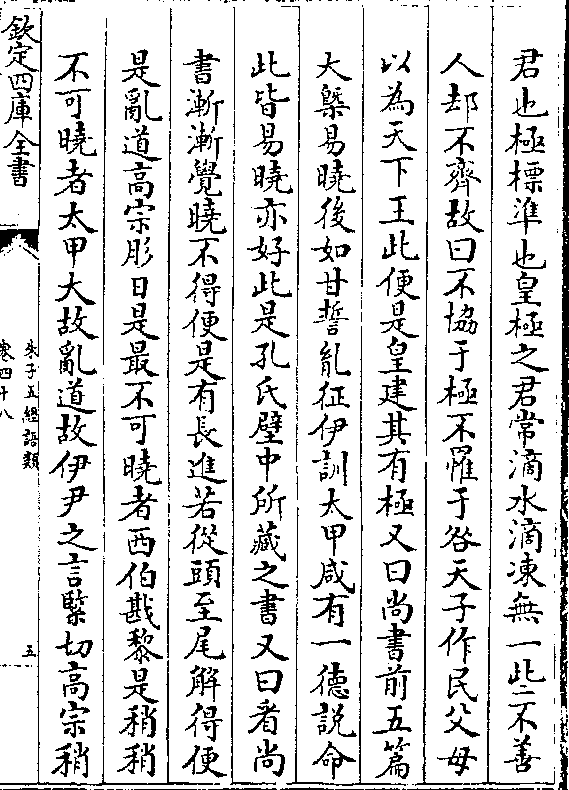 君也極標準也皇極之君常滴水滴凍無一些二不善
人却不齊故曰不協于極不罹于咎天子作民父母
以為天下王此便是皇建其有極又曰尚書前五篇
大槩易曉後如甘誓𦙍征伊訓太甲咸有一德説命
此皆易曉亦好此是孔氏壁中所藏之書又曰㸔尚
書漸漸覺曉不得便是有長進若從頭至尾解得便
是亂道高宗肜日是最不可曉者西伯戡黎是稍稍
不可曉者太甲大故亂道故伊尹之言緊切高宗稍
欽定四庫全書
朱子五經語類
卷四十八
五